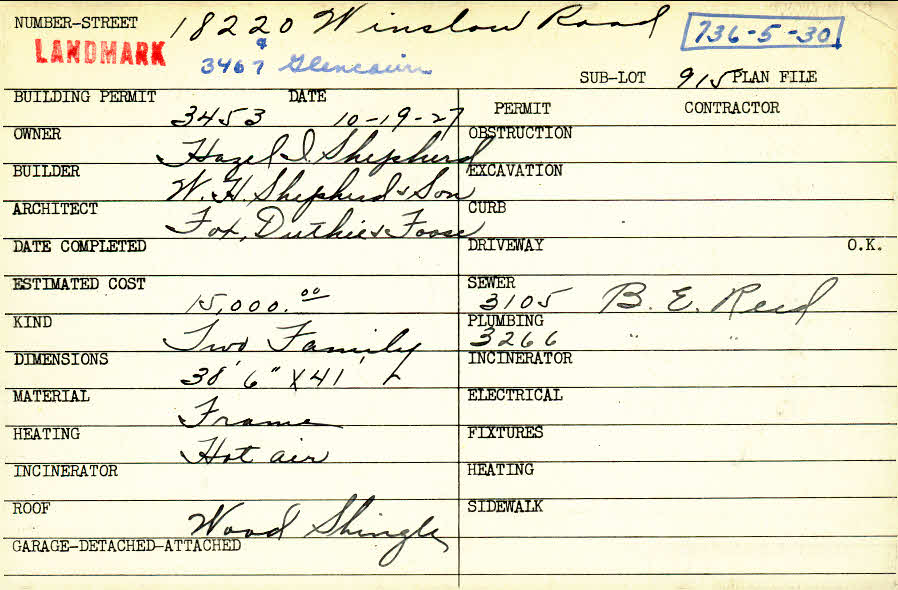 NUMBER-STREET 18220 Winslow Road 736-5-30
LANDMARK & 3467 Glencairn
SUB-LOT 915 PLAN FILE
BUILDING PERMIT 3453 DATE 10-19-27
OWNER Hazel I. Shepherd
BUILDER W. H. Shepherd & Son
ARCHITECT Fox, Duthie & Foose
DATE COMPLETED
ESTIMATED COST 15,000.00
KIND Two Family
DIMENSIONS 38' 6" X 41'
MATERIAL Frame
HEATING Hot air
INCINERATOR
ROOF Wood Shingle
GARAGE-DETACHED-ATTACHED
PERMIT CONTRACTOR
OBSTRUCTION
EXCAVATION
CURB
DRIVEWAY O.K.
SEWER 3105 B. E. Reed
PLUMBING 3266 " "
INCINERATOR
ELECTRICAL
FIXTURES
HEATING
SIDEWALK